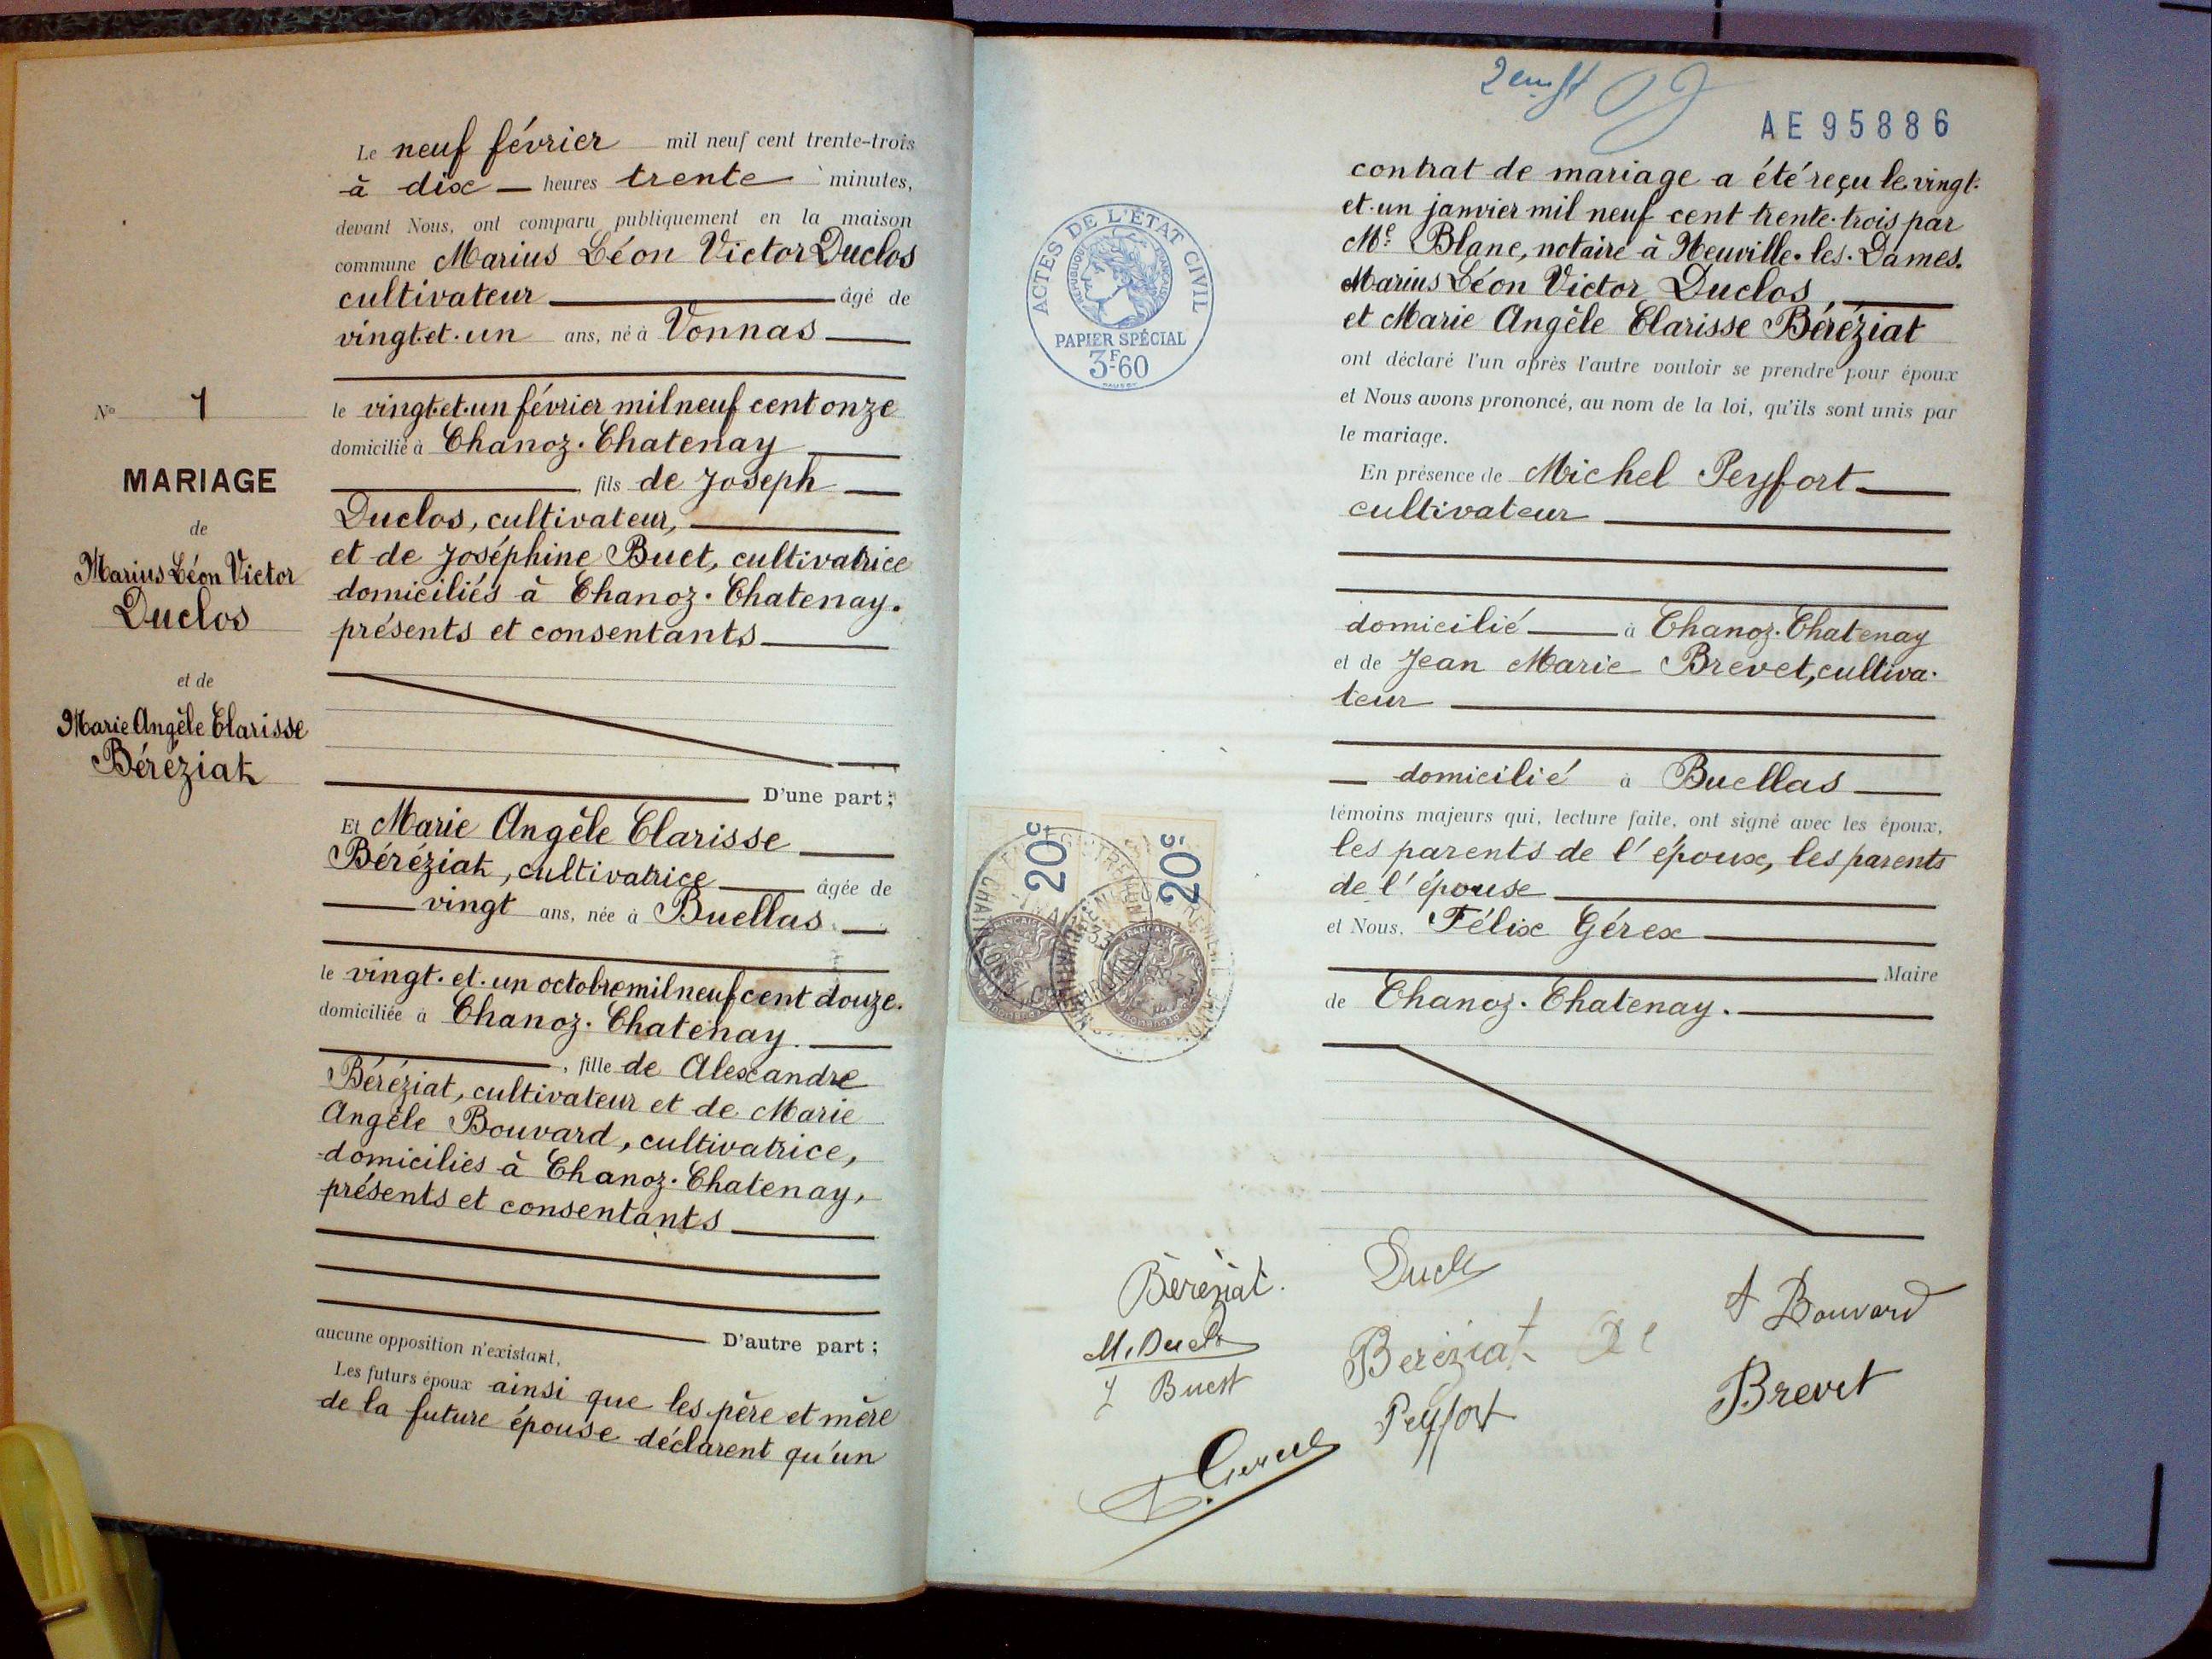 Le neuf février mil neuf cent trente-trois
à dix heures trente minutes,
devant Nous, ont comparu publiquement en la maison
commune Marius Léon Victor Duclos
cultivateur âgé de
vingt-et-un ans, né à Vonnas
le vingt-et-un février mil neuf cent onze
domicilié à Chanoz-Chatenay
, fils de Joseph
Duclos, cultivateur,
et de Joséphine Buet, cultivatrice
domiciliés à Chanoz-Chatenay.
présents et consentants
D'une part ;
Et Marie Angèle Clarisse
Béréziat, cultivatrice âgée de
vingt ans, née à Buellas
le vingt-et-un octobre mil neuf cent douze.
domiciliée à Chanoz-Chatenay.
, fille de Alexandre
Béréziat, cultivateur et de Marie
Angèle Bouvard, cultivatrice,
domiciliés à Chanoz-Chatenay,
présents et consentants
D'autre part ;
aucune opposition n'existant,
Les futurs époux ainsi que les père et mère
de la future épouse déclarent qu'un
Nº 1
MARIAGE
de
Marius Léon Victor
Duclos
et de
Marie Angèle Clarisse
Béréziat
AE 95886
contrat de mariage a été reçu le vingt-
et-un janvier mil neuf cent trente-trois par
Me Blanc, notaire à Neuville-les-Dames.
Marius Léon Victor Duclos,
et Marie Angèle Clarisse Béréziat
ont déclaré l'un après l'autre vouloir se prendre pour époux
et Nous avons prononcé, au nom de la loi, qu'ils sont unis par
le mariage.
En présence de Michel Peyfort
cultivateur
domicilié à Chanoz-Chatenay
et de Jean Marie Brevet, cultiva-
teur
domicilié à Buellas
témoins majeurs qui, lecture faite, ont signé avec les époux,
les parents de l'époux, les parents
de l'épouse
et Nous, Félix Gérex
Maire
de Chanoz-Chatenay.
ACTES DE L'ÉTAT CIVIL
RÉPUBLIQUE FRANÇAISE
PAPIER SPÉCIAL
3F60
20c
20c
Béréziat.
Duclos
A Bouvard
M. Duclos
Béréziat
J Buest
Peyfort
Brevet